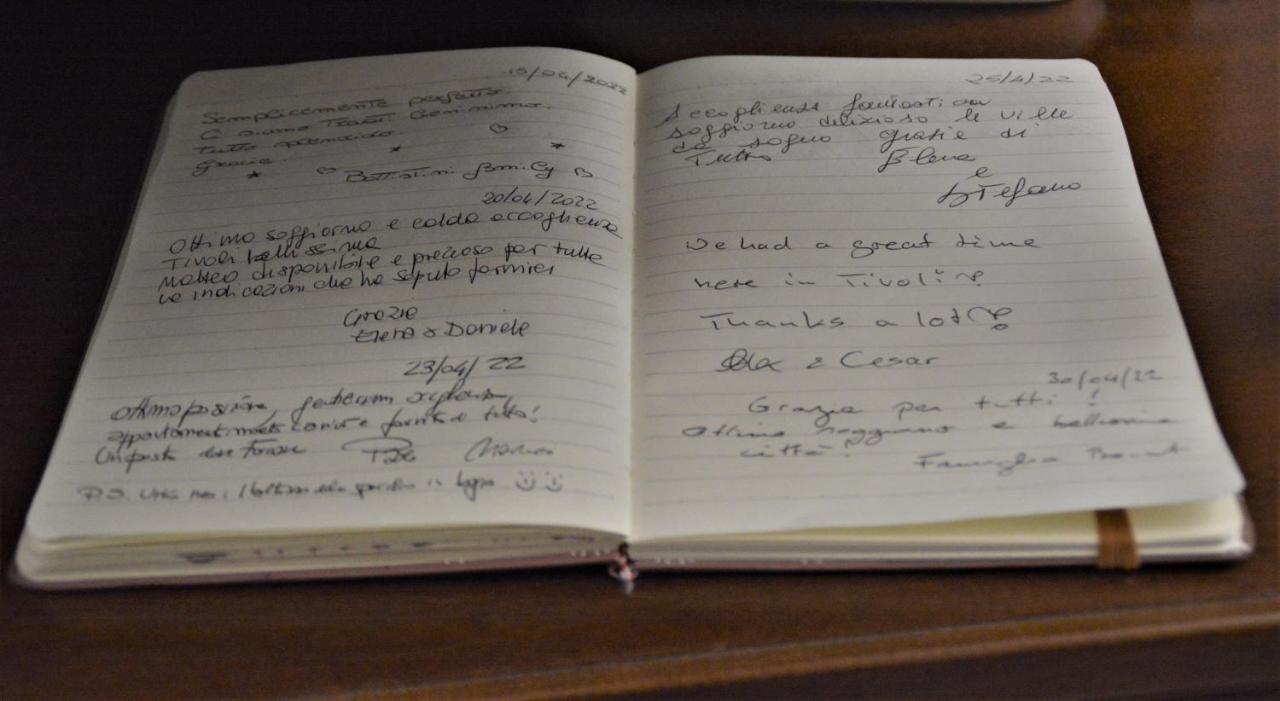 15/04/2022
Semplicemente perfetto
Ci siamo trovati benissimo.
tutto splendido
Grazie.
Battistini family
20/04/2022
Ottimo soggiorno e calda accoglienza
Tivoli bellissima
Matteo disponibile e prezioso per tutte
le indicazioni che ha saputo fornirci
Grazie
Elena & Daniele
23/04/22
Ottima posizione,
appartamento e fornito di tutto!
P.S.
25/4/22
Accoglienza fantastica
soggiorno delizioso le ville
da sogno grazie di
Tutto Elena
e
Stefano
We had a great time
here in Tivoli
Thanks a lot
& Cesar
30/04/22
Grazie per tutti!
Ottimo soggiorno e bellissima
città!
Famiglia